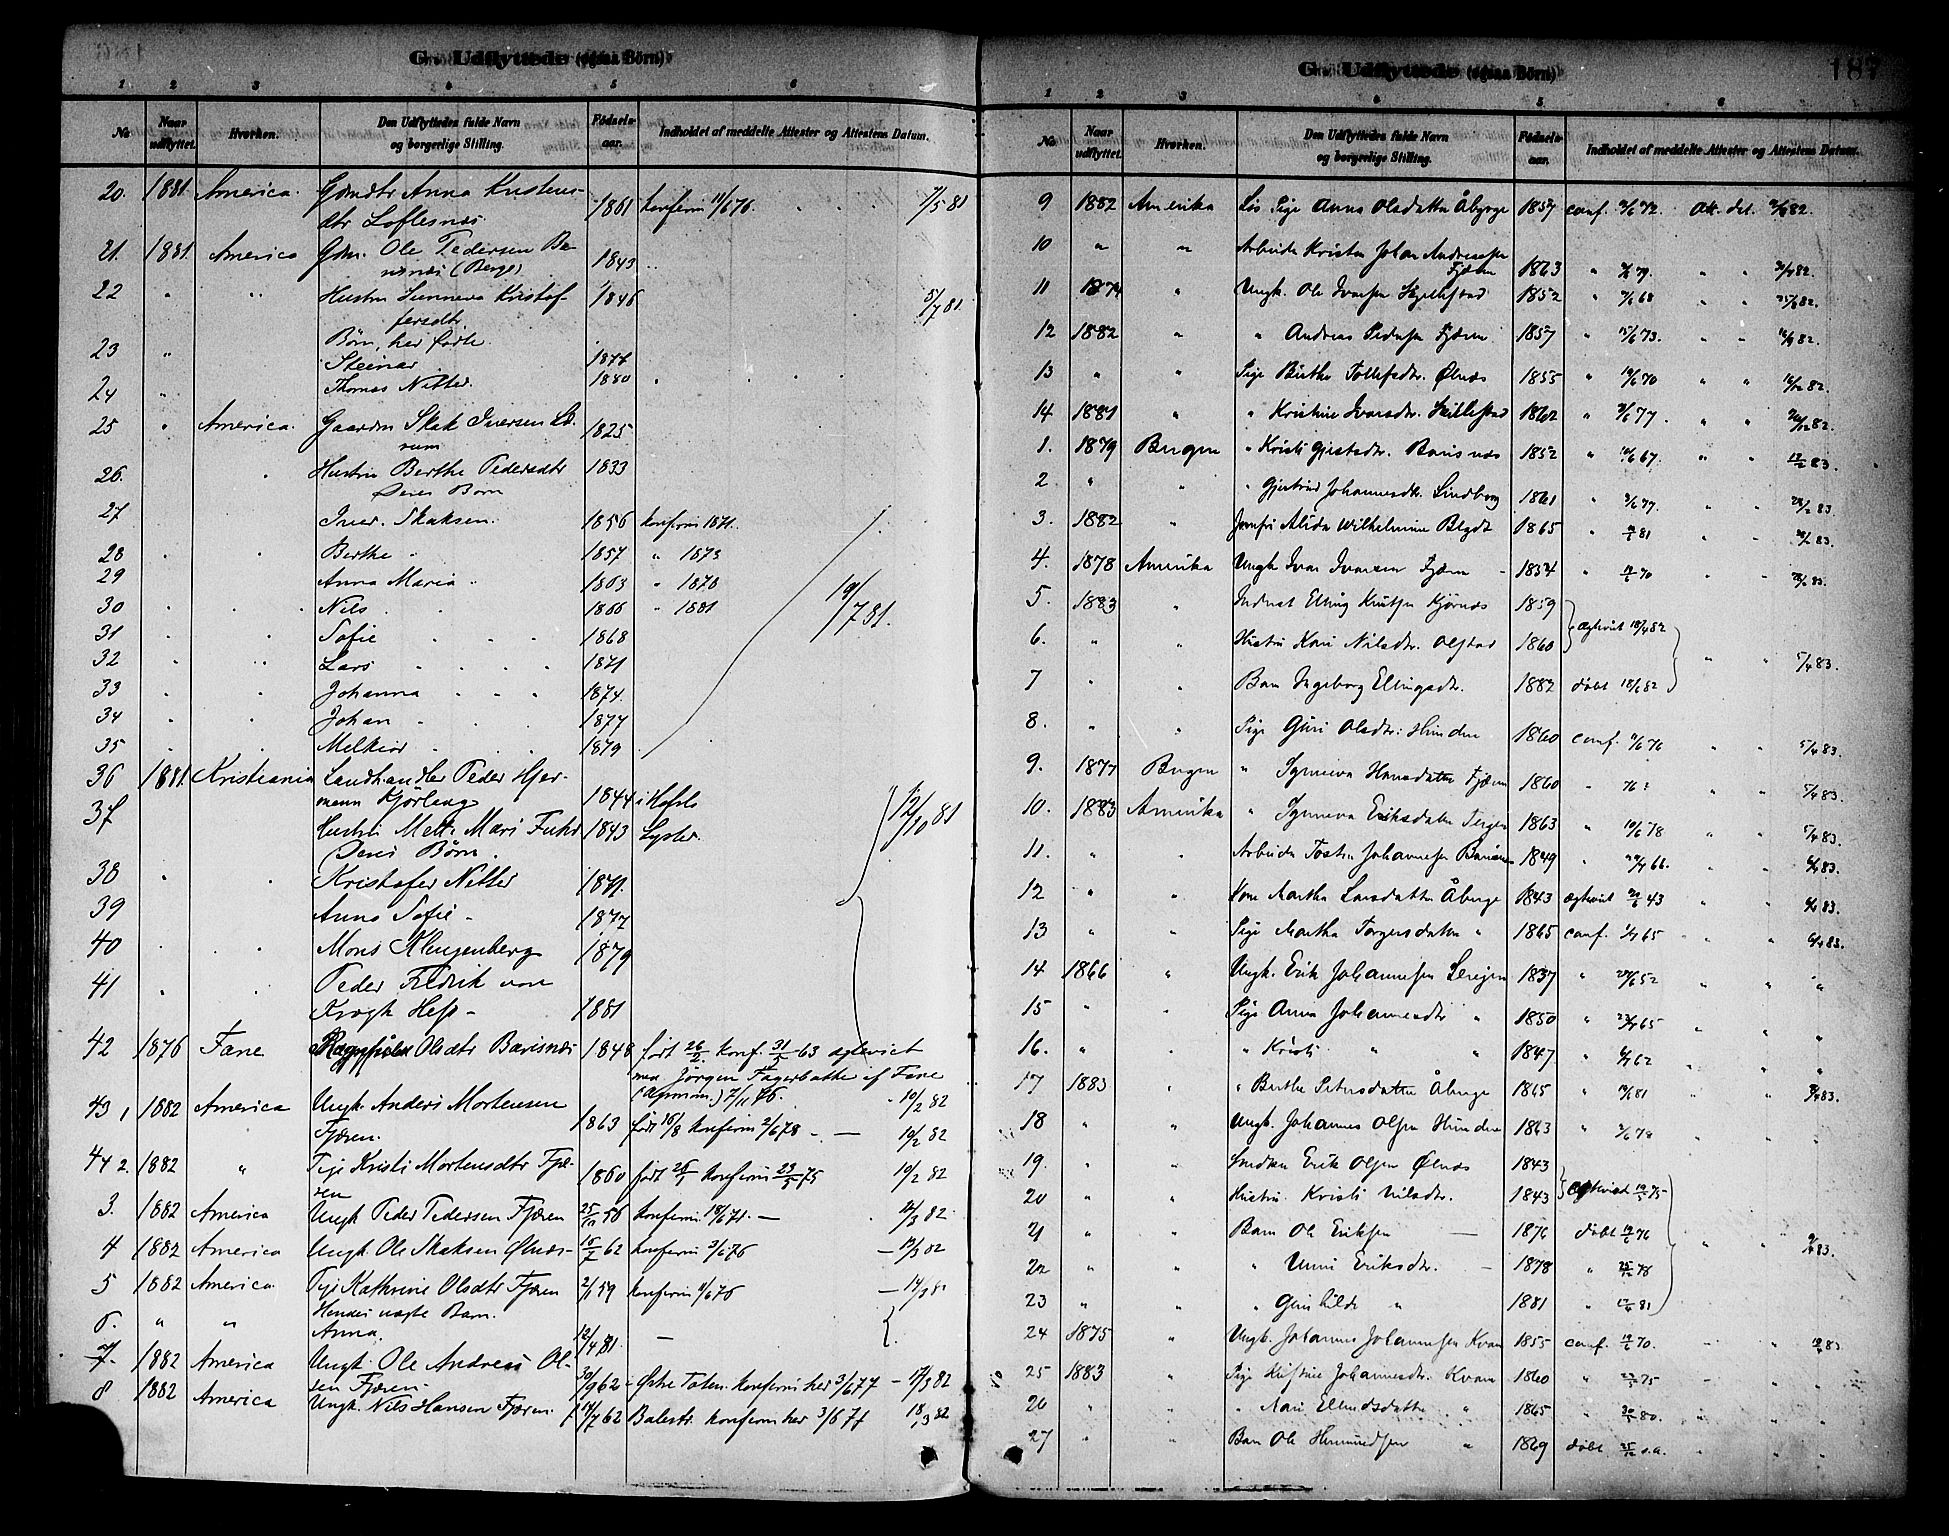 G. Udflyttede (ogsaa Börn)
1 2 3 4 5 6
No. Naar udflyttet. Hvorhen. Den Udflyttedes fulde Navn og borgerlige Stilling. Fødsels-aar. Indholdet af meddelte Attester og Attestens Datum.
20. 1881. America. Gdmdtr Anna Kristens-
dtr Loftesnæs 1861 konfirm 11/6 76. 7/5 81
21. 1881. America Gdm. Ole Pedersen Ba-
risnæs (Berge) 1843
22 " " Hustru Sunneva Kristof-
fersdtr 1846 5/7 81.
Børn, her fødte
23 " Steinar 1877
24 Thomas Nitter. 1880
25 " America. Gaardm Skak Iversen Lo-
rum 1825
26. Hustru Berthe Pedersdtr 1833
Deres Børn
27 Iver Skaksen. 1856 konfirm 1871.
28 Berthe 1857 " 1873
29 Anna Maria 1863 " 1878
30 Nils 1866 " 1881 19/7 81.
31 Sofie 1868
32 Lars 1871
33 Johanna 1874.
34 Johan 1877
35 Melkior 1879
36 1881. Kristiania Landhandler Peder Hjer-
mann 1844 i Hafslo
37 Hustru Mette Mari Fuhr 1843 Lyster. 12/10 81
Deres Børn.
38 Kristofer Nitter 1871.
39 Anna Sofie 1877
40 Mons Klingenberg 1879
41 Peder Fredrik von
Krogh Hess 1881
42 1876 Fane Olsdtr Barisnæs 1848 født 26/2. konf. 31/5 63 ægteviet
med Jörgen Fagerbakke af Fane
7/11 76.
43 1 1882 America Ungk. Anders Mortensen 10/2 82
Fjæren. 1863 født 16/8 konfirm 2/6 78 — 10/2 82
44 2. 1882 " Pige Kristi Mortensdtr Fjæ-
ren 1860 født 26/1 konfirm 23/5 75 10/2 82
3. 1882 America Ungk Peder Pedersen Fjæren 25/11 56 konfirm 18/6 71. — 12/3 82.
4 1882 America Ungk. Ole Skaksen Ølnæs 15/2 62 konfirm 3/6 76 — 12/3 82
5 1882 America Pige Kathrine Olsdtr Fjæren 2/1 59 konfirm 11/6 76 — 14/3 81
Hendes uægte Barn.
6. " " Anna. 12/4 81 —
7. 1882 America Ungk. Ole Andreas Ol-
sen Fjæren 30/9 62 Østre Toten. konfirm her 3/6 77 — 17/3 82
8 1882 America Ungk. Nils Hansen Fjæren. 14/7 62 Balestr. konfirm her 3/6 77 18/3 82
G. Udflyttede (ogsaa Börn) 187
1 2 3 4 5 6
No. Naar udflyttet. Hvorhen. Den Udflyttedes fulde Navn og borgerlige Stilling. Fødsels-aar. Indholdet af meddelte Attester og Attestens Datum.
9 1882 Amerika Løs Pige Anna Olsdatter Åbyrge 1857 conf. 72. Att. del. 82.
10 " " Arbeider Kristen Johan Andreassen
Fjæren 1863 " 79. " " 82.
11 1874 " Ungk. Ole Ivarsen Skjellestad 1852 " 68 " " 82.
12 1882 " " Andreas Pedersen Fjæren 1857 " 15/6 73. " " 82.
13 " " Pige Birthe Tollefsdtr. Ølnæs 1855 " 19/6 70 " " 82.
14 1881 " " Kristine Ivarsdtr. Skillestad 1862 " 3/6 77. " " 82.
1. 1879 Bergen " Kristi Gjestsdtr. Barisnæs 1852 " 16/6 67. " " 83.
2 " " " Gjertrud Johannesdtr. Lindborg 1861 " 3/6 77. " " 83.
3. 1882 " Jomfru Alida Wilhelmine Blydt 1865 " 81 " " 83.
4. 1878 Amerika Ungk Ivar Ivarsen Fjæren 1854 " 70 " " 83.
5. 1883 " Inderst Elling Knutsen Kjørnæs 1859
6. " " Hustru Kari Nilsdtr. Olstad 1860 Ægteviet 18/4 82
7 " " Barn Ingeborg Ellingsdtr. 1882 døbt 18/6 82 " " 5/4 83.
8. " " Pige Guri Olsdtr. Hundere 1860 conf. 11/6 76 " " 5/4 83.
9. 1877 Bergen " Synneva Hansdatter Fjæren 1860 " 76? 5/4 83.
10. 1883 Amerika " Synneva Eriksdatter 1863 " 10/6 78 " " 5/4 83.
11. " " Arbeider Tosten Johannesen 1849 " 66. " " 83.
12 " " Kone Martha Larsdatter Åberge 1843 Ægteviet 43 " " 83.
13 " " Pige Martha Torgersdatter " 1865 conf. 65 " " 83.
14 1866 " Ungk. Erik Johannesen 1837 " 52 " " "
15 " " Pige Anna Johannesdtr " 1850 " 65 " " "
16. " " " Kristi " " 1847 " 62 " " "
17 1883 " " Birthe Petersdatter Åberge 1865 " 81 " " 83.
18 " " Ungk. Johannes Olsen Hundere 1863 " 2/6 78 " " "
19. " " Smeden Erik Olsen Ølnæs 1843
20 " " Hustru Kristi Nilsdtr. 1843 Ægteviet 75
21 " " Barn Ole Eriksen — 1876 døbt 76 " " 83.
22 " " " Unni Eriksdtr. — 1878 " 78
23 " " " Gunhilde " 1881 " 81
24 1875 " Ungk. Johannes Johannesen Kvam 1855 conf. 70. " 83
25 1883 " Pige Kristine Johannesdtr. Kvam 1860 " 75 " " "
26 " " " Kari Ellendsdatter " 1865 " 80. " " "
27 " " Barn Ole " 1869 døbt s.a. " " "